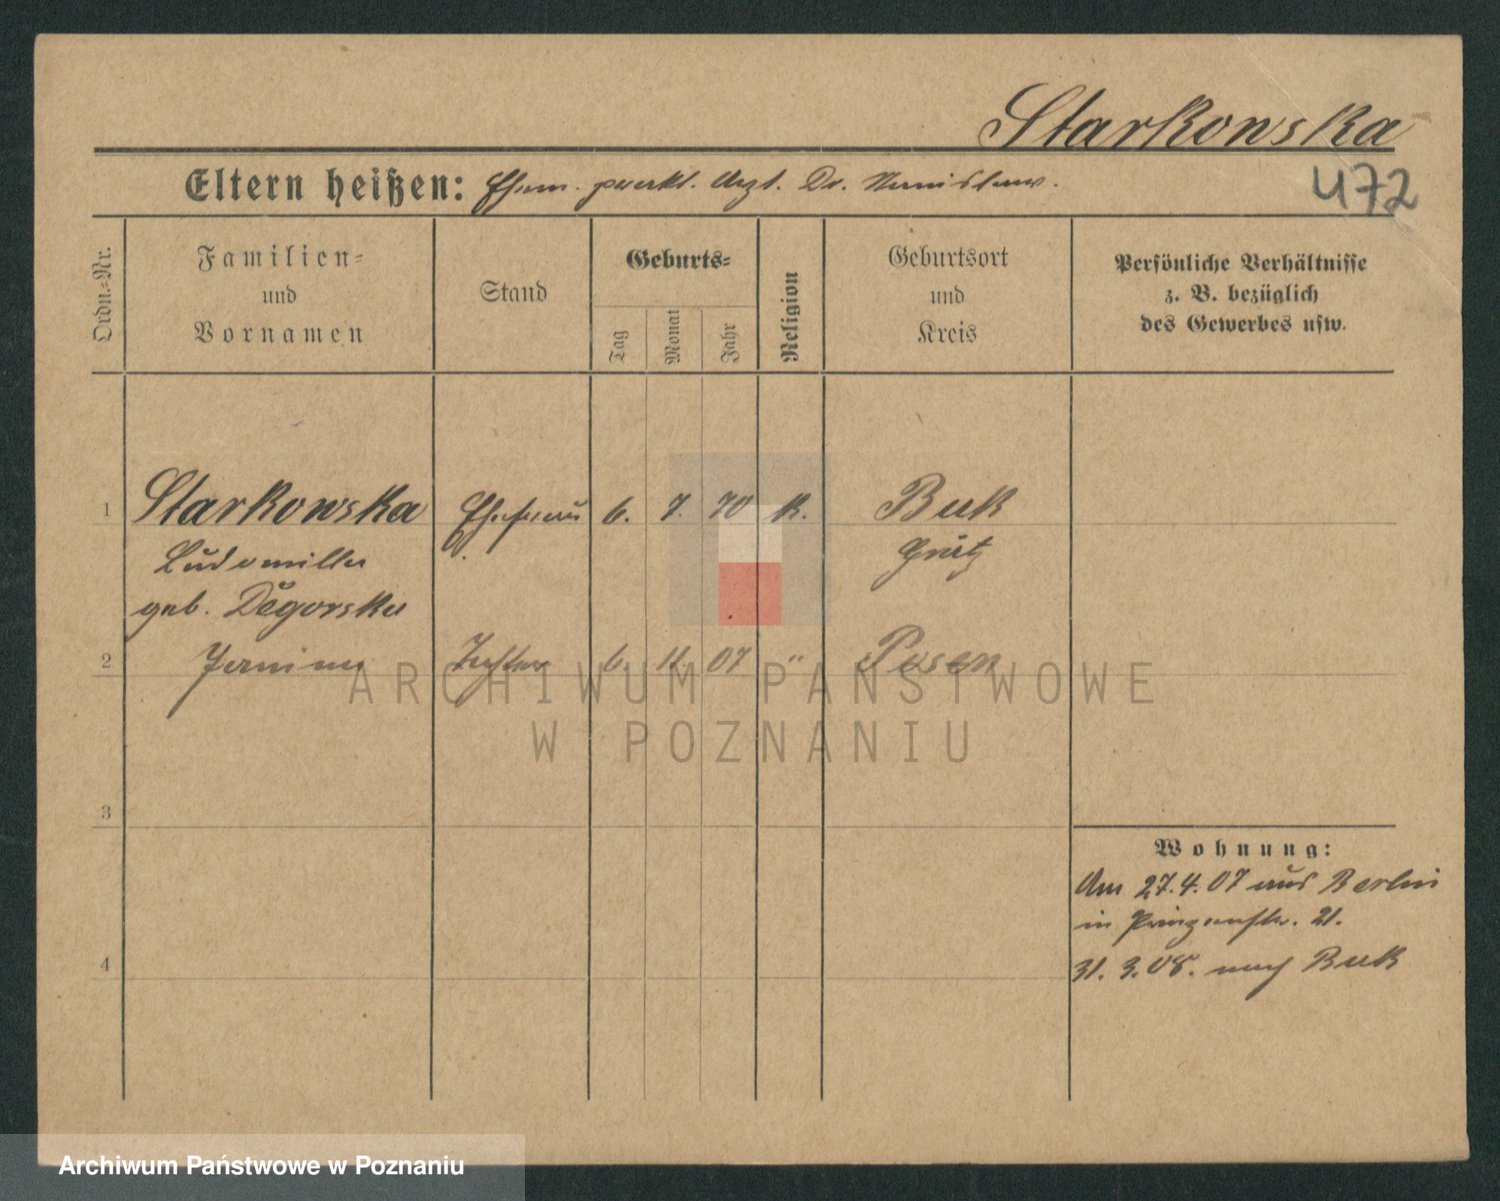 Starkowska
Eltern heißen: Ehem. prakt. Arzt. Dr. Stanislaus.
472
Ordn.-Nr.
Familien-
und
Vornamen
Stand
Geburts-
Tag
Monat
Jahr
Religion
Geburtsort
und
Kreis
Persönliche Verhältnisse
z. B. bezüglich
des Gewerbes usw.
1 Starkowska Ehefrau 6. 7. 70 K. Buk
Ludomilla Grätz
geb. Degorska
2 Janina Tochter 6. 11. 07 " Posen
ARCHIWUM PAŃSTWOWE
W POZNANIU
3
Wohnung:
Am 27.4.07 aus Berlin
in Prinzenstr. 21.
4
31. 3. 08. nach Buk
Archiwum Państwowe w Poznaniu